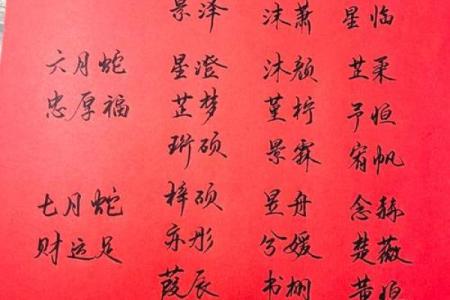 景泽 沫萧 星临
六月蛇 星澄 沐颜 芷柔
忠厚福 芷梦 堇柠 予恒
珩硕 景霖 宥帆
七月蛇 梓硕 昱舟 念赫
财运足 亦彤 兮媛 楚薇
葭辰 书栩